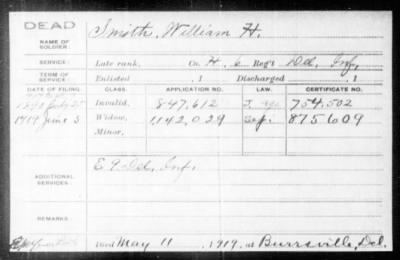 DEAD
NAME OF SOLDIER: Smith, William H.
SERVICE: Late rank, Co. H, 6 Reg't Del. Inf.
TERM OF SERVICE: Enlisted , 1 Discharged , 1
DATE OF FILING. CLASS. APPLICATION NO. LAW. CERTIFICATE NO.
1890 July 25 Invalid, 847,612 754,502
1919 June 3 Widow, 1,142,029 875609
Minor,
ADDITIONAL SERVICES: E 9 Del. Inf.
REMARKS:
died May 11, 1919, at Burrsville, Del.